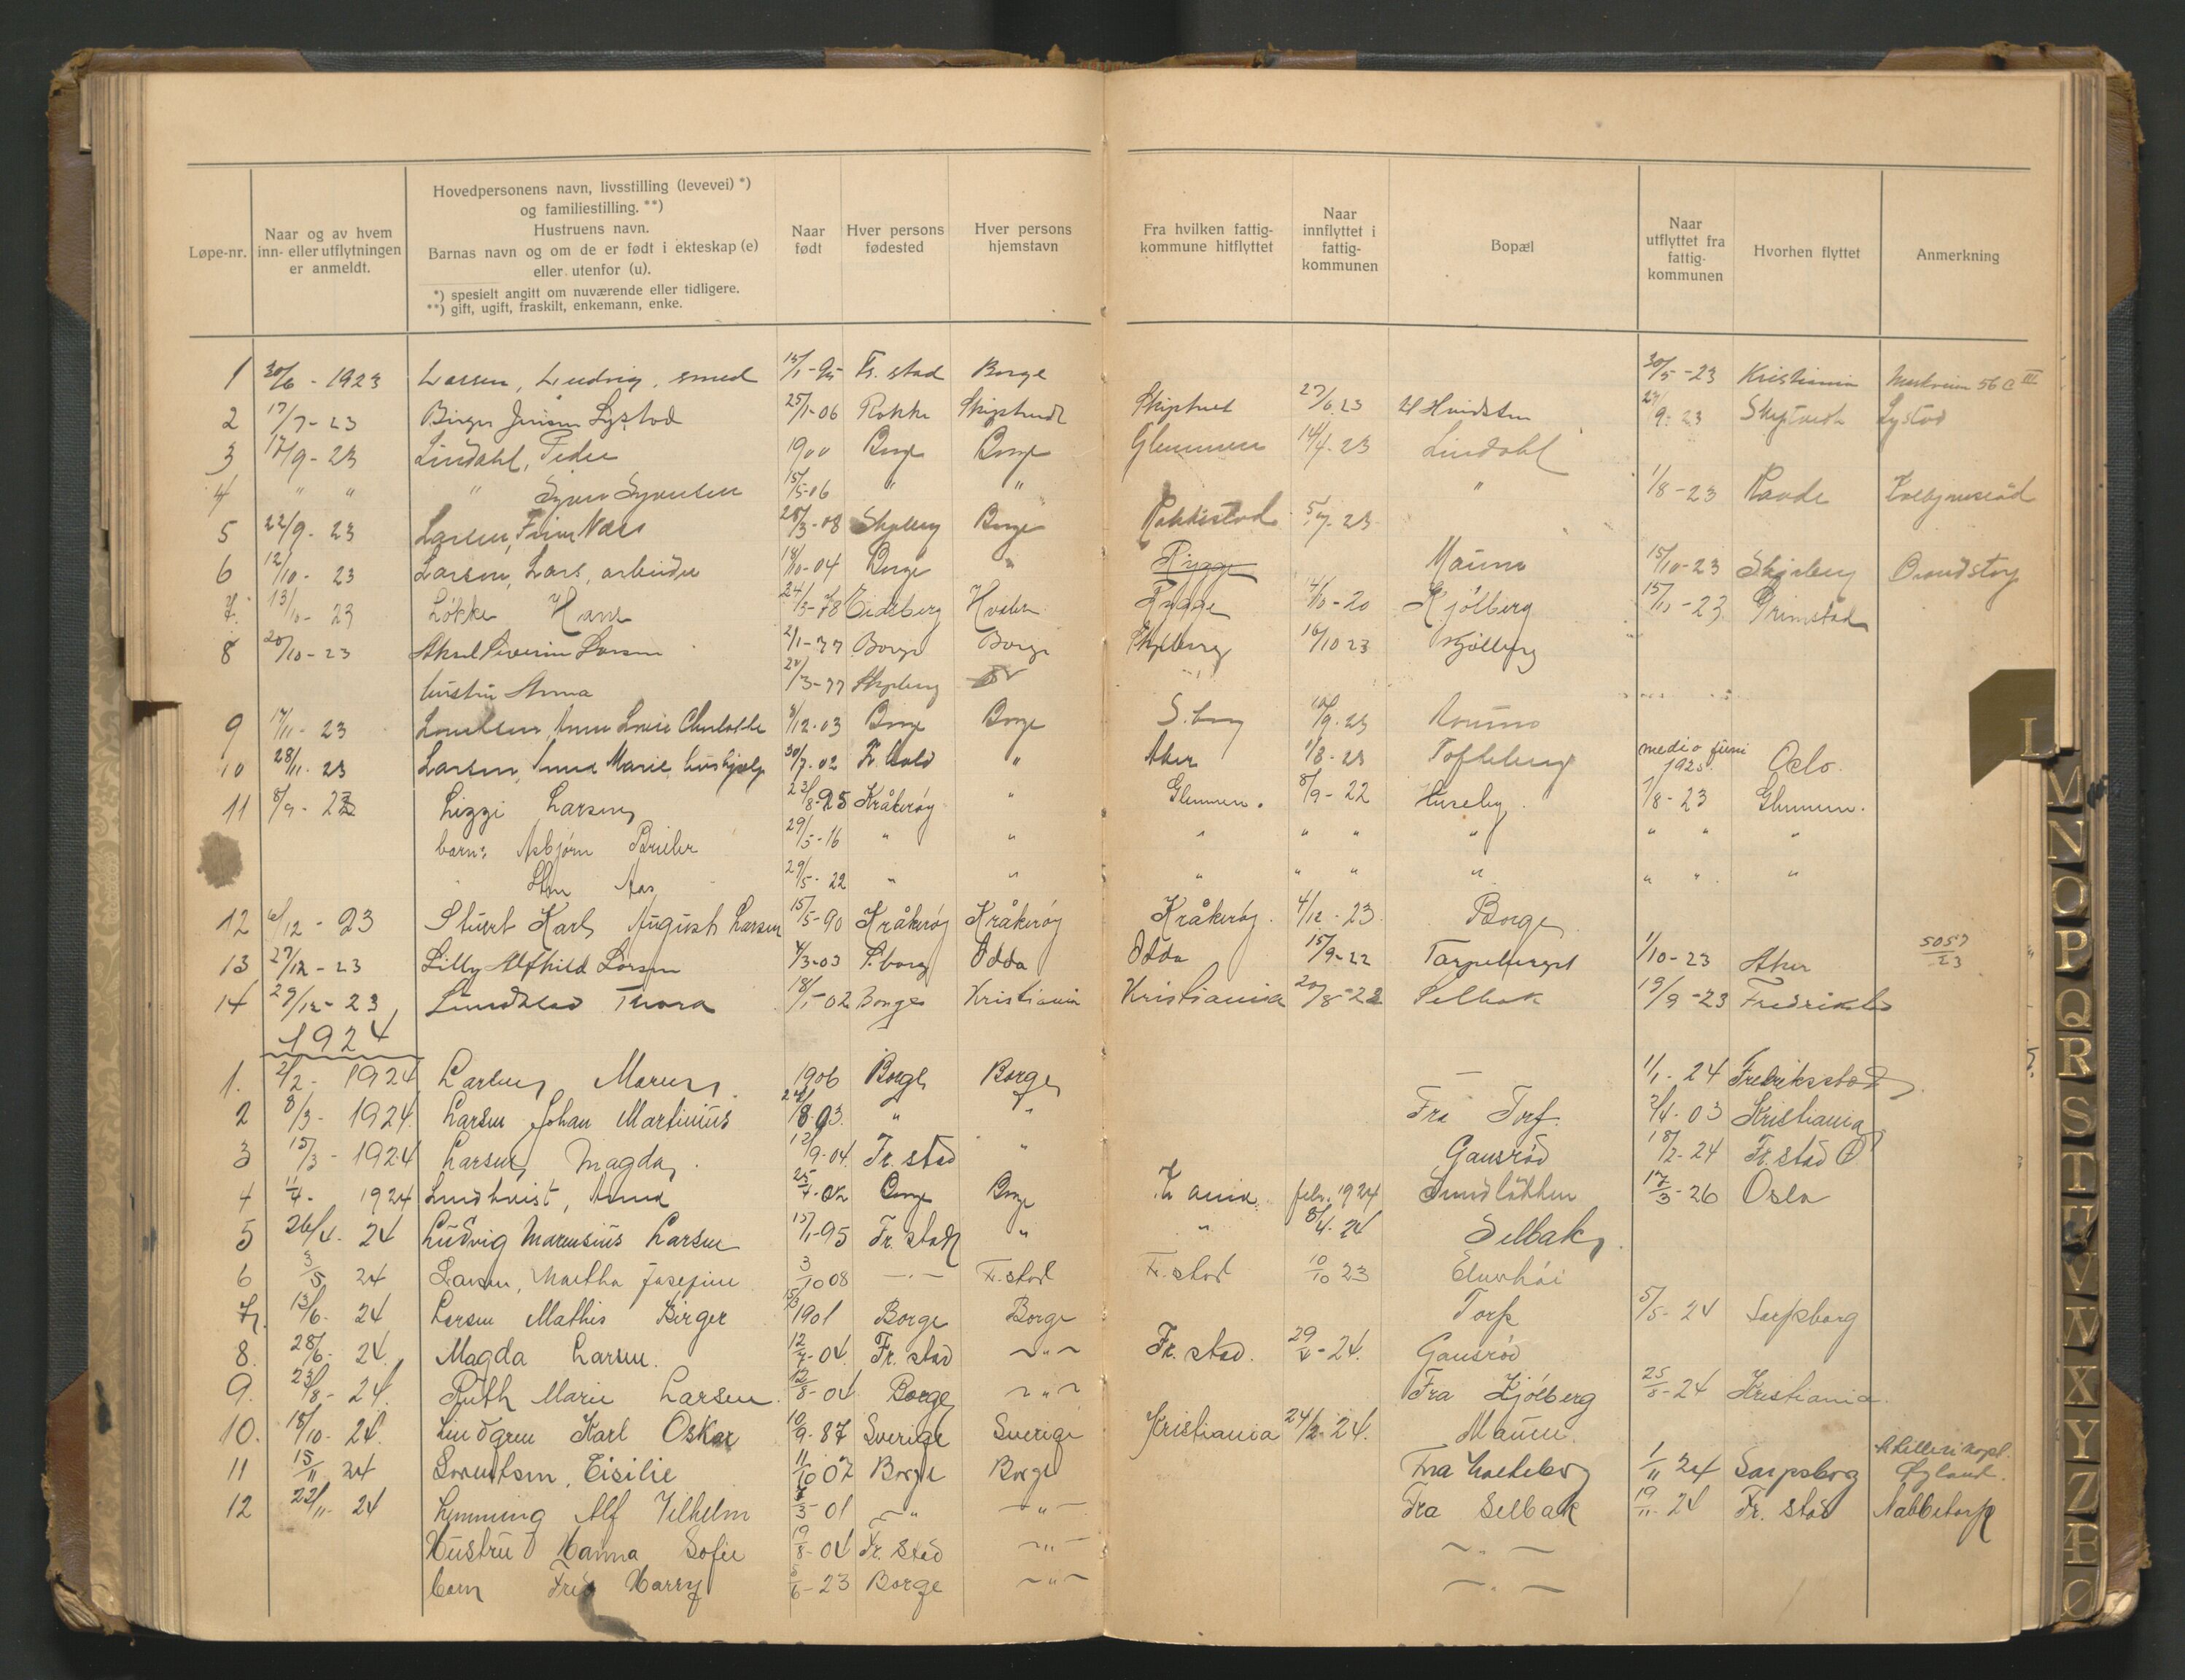 Løpe-nr.
Naar og av hvem inn- eller utflytningen er anmeldt.
Hovedpersonens navn, livsstilling (levevei) *)
og familiestilling. **)
Hustruens navn.
Barnas navn og om de er født i ekteskap (e)
eller utenfor (u).
*) spesielt angitt om nuværende eller tidligere.
**) gift, ugift, fraskilt, enkemann, enke.
Naar født
Hver persons fødested
Hver persons hjemstavn
Fra hvilken fattig-kommune hitflyttet
Naar innflyttet i fattig-kommunen
Bopæl
Naar utflyttet fra fattig-kommunen
Hvorhen flyttet
Anmerkning
1 30/6 - 1923 Larsen, Ludvig, smed 15/1-95 Fr. stad Borge 30/5-23 Kristiania 56 C III
2 17/7-23 Birger Jensen Lystad 25/1-06 Rakke Skiptvedt Skiptvet 27/6 23 Hvidsten 27/9-23 Skiptvedt Lystad
3 17/9-23 Lindahl, Peder 1900 Borge Borge Glemmen 14/4-23 Lindahl
4 " " " Syver Syversen 15/5-06 " " " 1/8-23 Raade
5 22/9-23 Larsen, Finn Næs 28/3-08 Skjeberg Borge Rakkestad 5/7-23
6 12/10-23 Larsen, Lars, arbeider 18/10-04 Borge " Rygge Maum 15/10-23 Skjeberg Brandstorp
7. 13/10-23 Løkke Hans 24/3-78 Eidsberg Hvaler Rygge 4/10-20 Kjølberg 15/11-23 Grimstad
8 20/10-23 Aksel Severin Larsen 2/1-77 Borge Borge Skjeberg 16/10 23 Kjølberg
hustru Anna 24/3-77 Skjeberg
9 17/11-23 Anna Lovise Charlotte 8/12-03 Borge Borge S. borg 10/9-23
10 28/11-23 Larsen, Anna Marie, hushjelp 30/7-02 Fr. hald " Aker 1/8-23 Tofteberg medio juni 1925. Oslo.
11 8/9-23 Lizzi Larsen 23/8-95 Kråkerøy " Glemmen. 8/9-22 Huseby. 1/8-23 Glemmen.
barn: Asbjørn 29/5-16 " " " " " " " " "
Aas 29/5-22 " " " " " " " " "
12 6/12-23 Stuert Karl August Larsen 15/5-90 Kråkerøy Kråkerøy Kråkerøy. 4/12-23. Borge
13 27/12-23 Lilly Alfhild Larsen 4/3-03 S. borg Odda Odda 15/9-22 1/10-23 Aker 5057/23
14 29/12-23 Lundblad Thora 18/1-02 Borge Kristiania Kristiania 20/8-22 Selbak 19/9-23 Fredrikstad
1924
1. 2/2-1924 Larsen 1906 Borge Borge 1/1-24 Fredriksstad
2 8/3-1924. Larsen Johan Martinius 18-03. " " Fra Torp. 2/4-03 Kristiania
3 15/3-1924 Larsen, Magda. 12/9-04. Fr. stad " Gansrød 18/2-24 Fr. stad Ø
4 11/4-1924 Lindkvist, Anna 25/4-02 Borge Borge K. ania. febr. 1924 Sundløkken 17/3-26 Oslo
5 26/4. 24 Ludvig Marensius Larsen 15/1-95 Fr. stad " " 8/4-24 Selbak.
6 3/5 24 Larsen, Martha Josefine 3/10 08 -"- Fr. stad Fr. stad 10/10 23 Elverhøi
7. 13/6-24 Larsen Mathis Birger 15/3 1901 Borge Borge Torp 5/5-24 Sarpsborg
8. 28/6-24. Magda Larsen. 12/7-04. Fr. stad -"- Fr. stad. 29/4-24. Gansrød
9. 23/8-24. Ruth Marie Larsen 12/8-04 Borge -"- Fra Kjølberg 25/8-24 Kristiania.
10. 18/10-24. Lindgren Karl Oskar 10/9-87 Sverige Sverige Kristiania 24/2-24. Maum.
11 15/11 24 Lorentsen, Eisilie 11/10 07 Borge Borge Fra 1/11 24 Sarpsborg Øyland.
12 22/11 24 Lemming Alf Vilhelm 3 01 -"- -"- Fra Selbak 19/11-24 Fr. stad Nabbetorp
Hustru Hanna Sofie 19/8-04 Fr. stad -"- -"-
barn Harry 6-23 Borge -"- -"-
L
M
N
O
P
Q
R
S
T
U
V
W
X
Y
Z
Æ
Ø